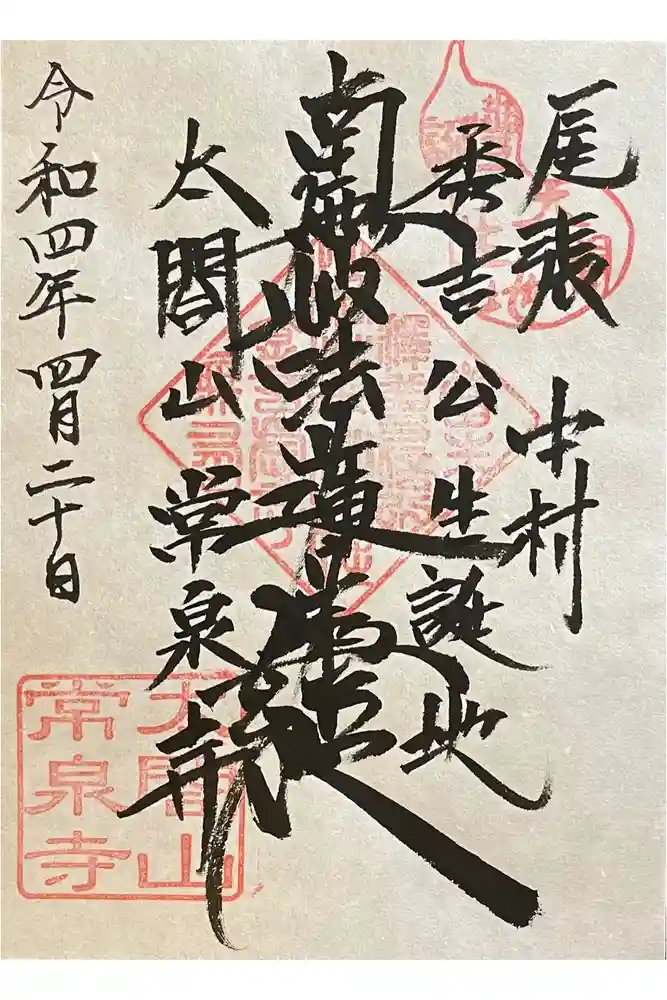 尾張 中村
秀吉公生誕地
南無妙法蓮華經
太閤山常泉寺
令和四年四月二十日
太閤山
常泉寺